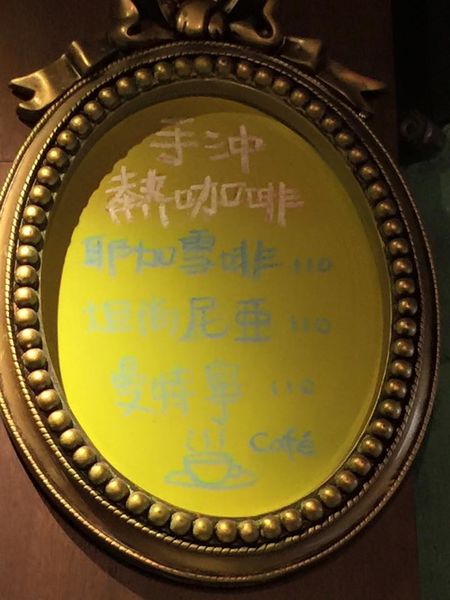 手沖
熱咖啡
耶加雪啡 110
坦尚尼亞 110
曼特寧 110
Café